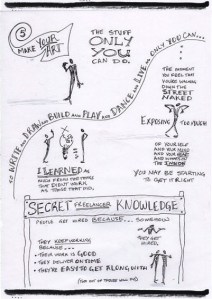 3
MAKE YOUR
ART
THE STUFF
ONLY
YOU
CAN DO.
SO WRITE AND DRAW AND BUILD AND PLAY AND DANCE AND LIVE AS ONLY YOU CAN...
THE MOMENT
YOU FEEL THAT
YOU'RE WALKING
DOWN THE
STREET
NAKED
EXPOSING TOO MUCH
OF YOURSELF
AND YOUR MIND
AND YOUR HEART
AND WHAT'S ON
THE INSIDE
YOU MAY BE STARTING
TO GET IT RIGHT
I LEARNED AS
MUCH FROM THE THINGS
THAT DIDN'T WORK
AS THOSE THAT DID.
SECRET FREELANCER KNOWLEDGE
PEOPLE GET HIRED BECAUSE... SOMEHOW
THEY
GET
HIRED,
THEY KEEP WORKING
BECAUSE...
• THEIR WORK IS GOOD
• THEY DELIVER ON TIME
• THEY'RE EASY TO GET ALONG WITH
(TWO OUT OF THREE WILL DO)